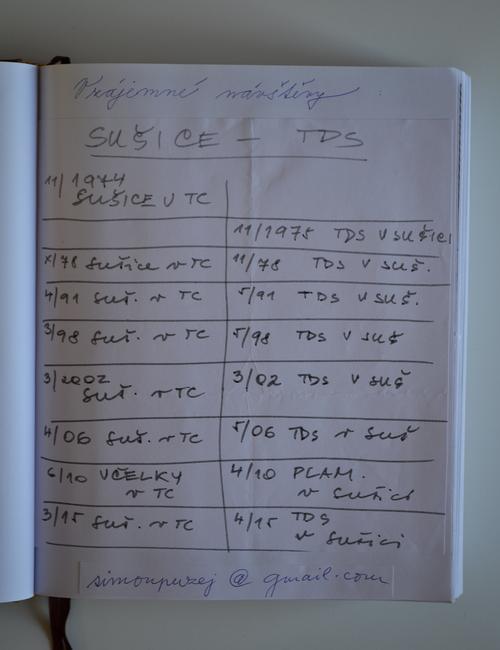 Vzájemné návštěvy
SUŠICE – TDS
11/1974
SUŠICE V TC
11/1975 TDS V SUŠICI
X/78 Sušice v TC 11/78 TDS V SUŠ.
4/91 Suš. v TC 5/91 TDS V SUŠ.
3/98 Suš. v TC 5/98 TDS V SUŠ
3/2002 3/02 TDS V SUŠ
Suš. v TC
4/06 Suš. v TC 5/06 TDS v Suš
6/10 VČELKY 4/10 PLAM.
v TC v Sušici
3/15 Suš. v TC 4/15 TDS
v Sušici
simonpuzej @ gmail.com